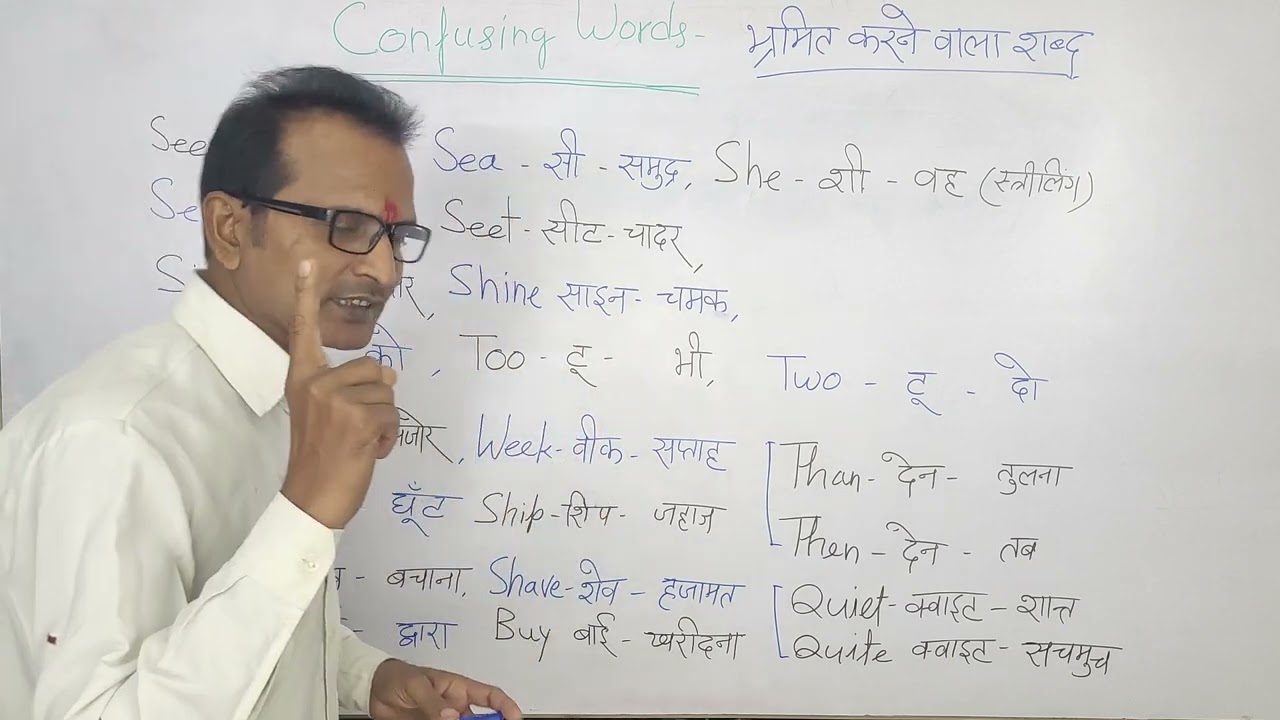 Confusing Words - भ्रमित करने वाला शब्द
See Sea - सी - समुद्र, She - शी - वह (स्त्रीलिंग)
Seet - सीट - चादर,
Shine साइन - चमक,
को, Too - टू - भी, Two - टू - दो
Week - वीक - सप्ताह [Than - देन - तुलना
घूँट Ship - शिप - जहाज Then - देन - तब
- बचाना, Shave - शेव - हजामत [Quiet - क्वाइट - शान्त
- द्वारा Buy बाई - खरीदना Quite क्वाइट - सचमुच